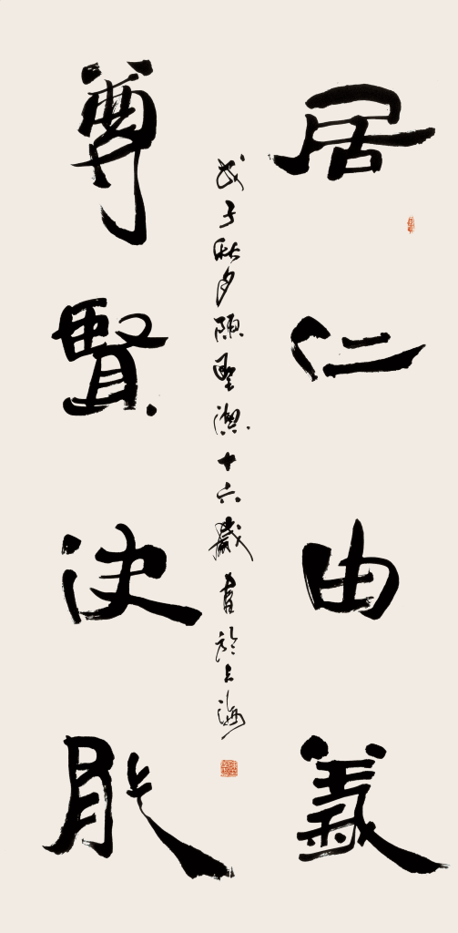 居仁由義
尊賢使能
戊子秋夕陳聖澍十六歲書於上海